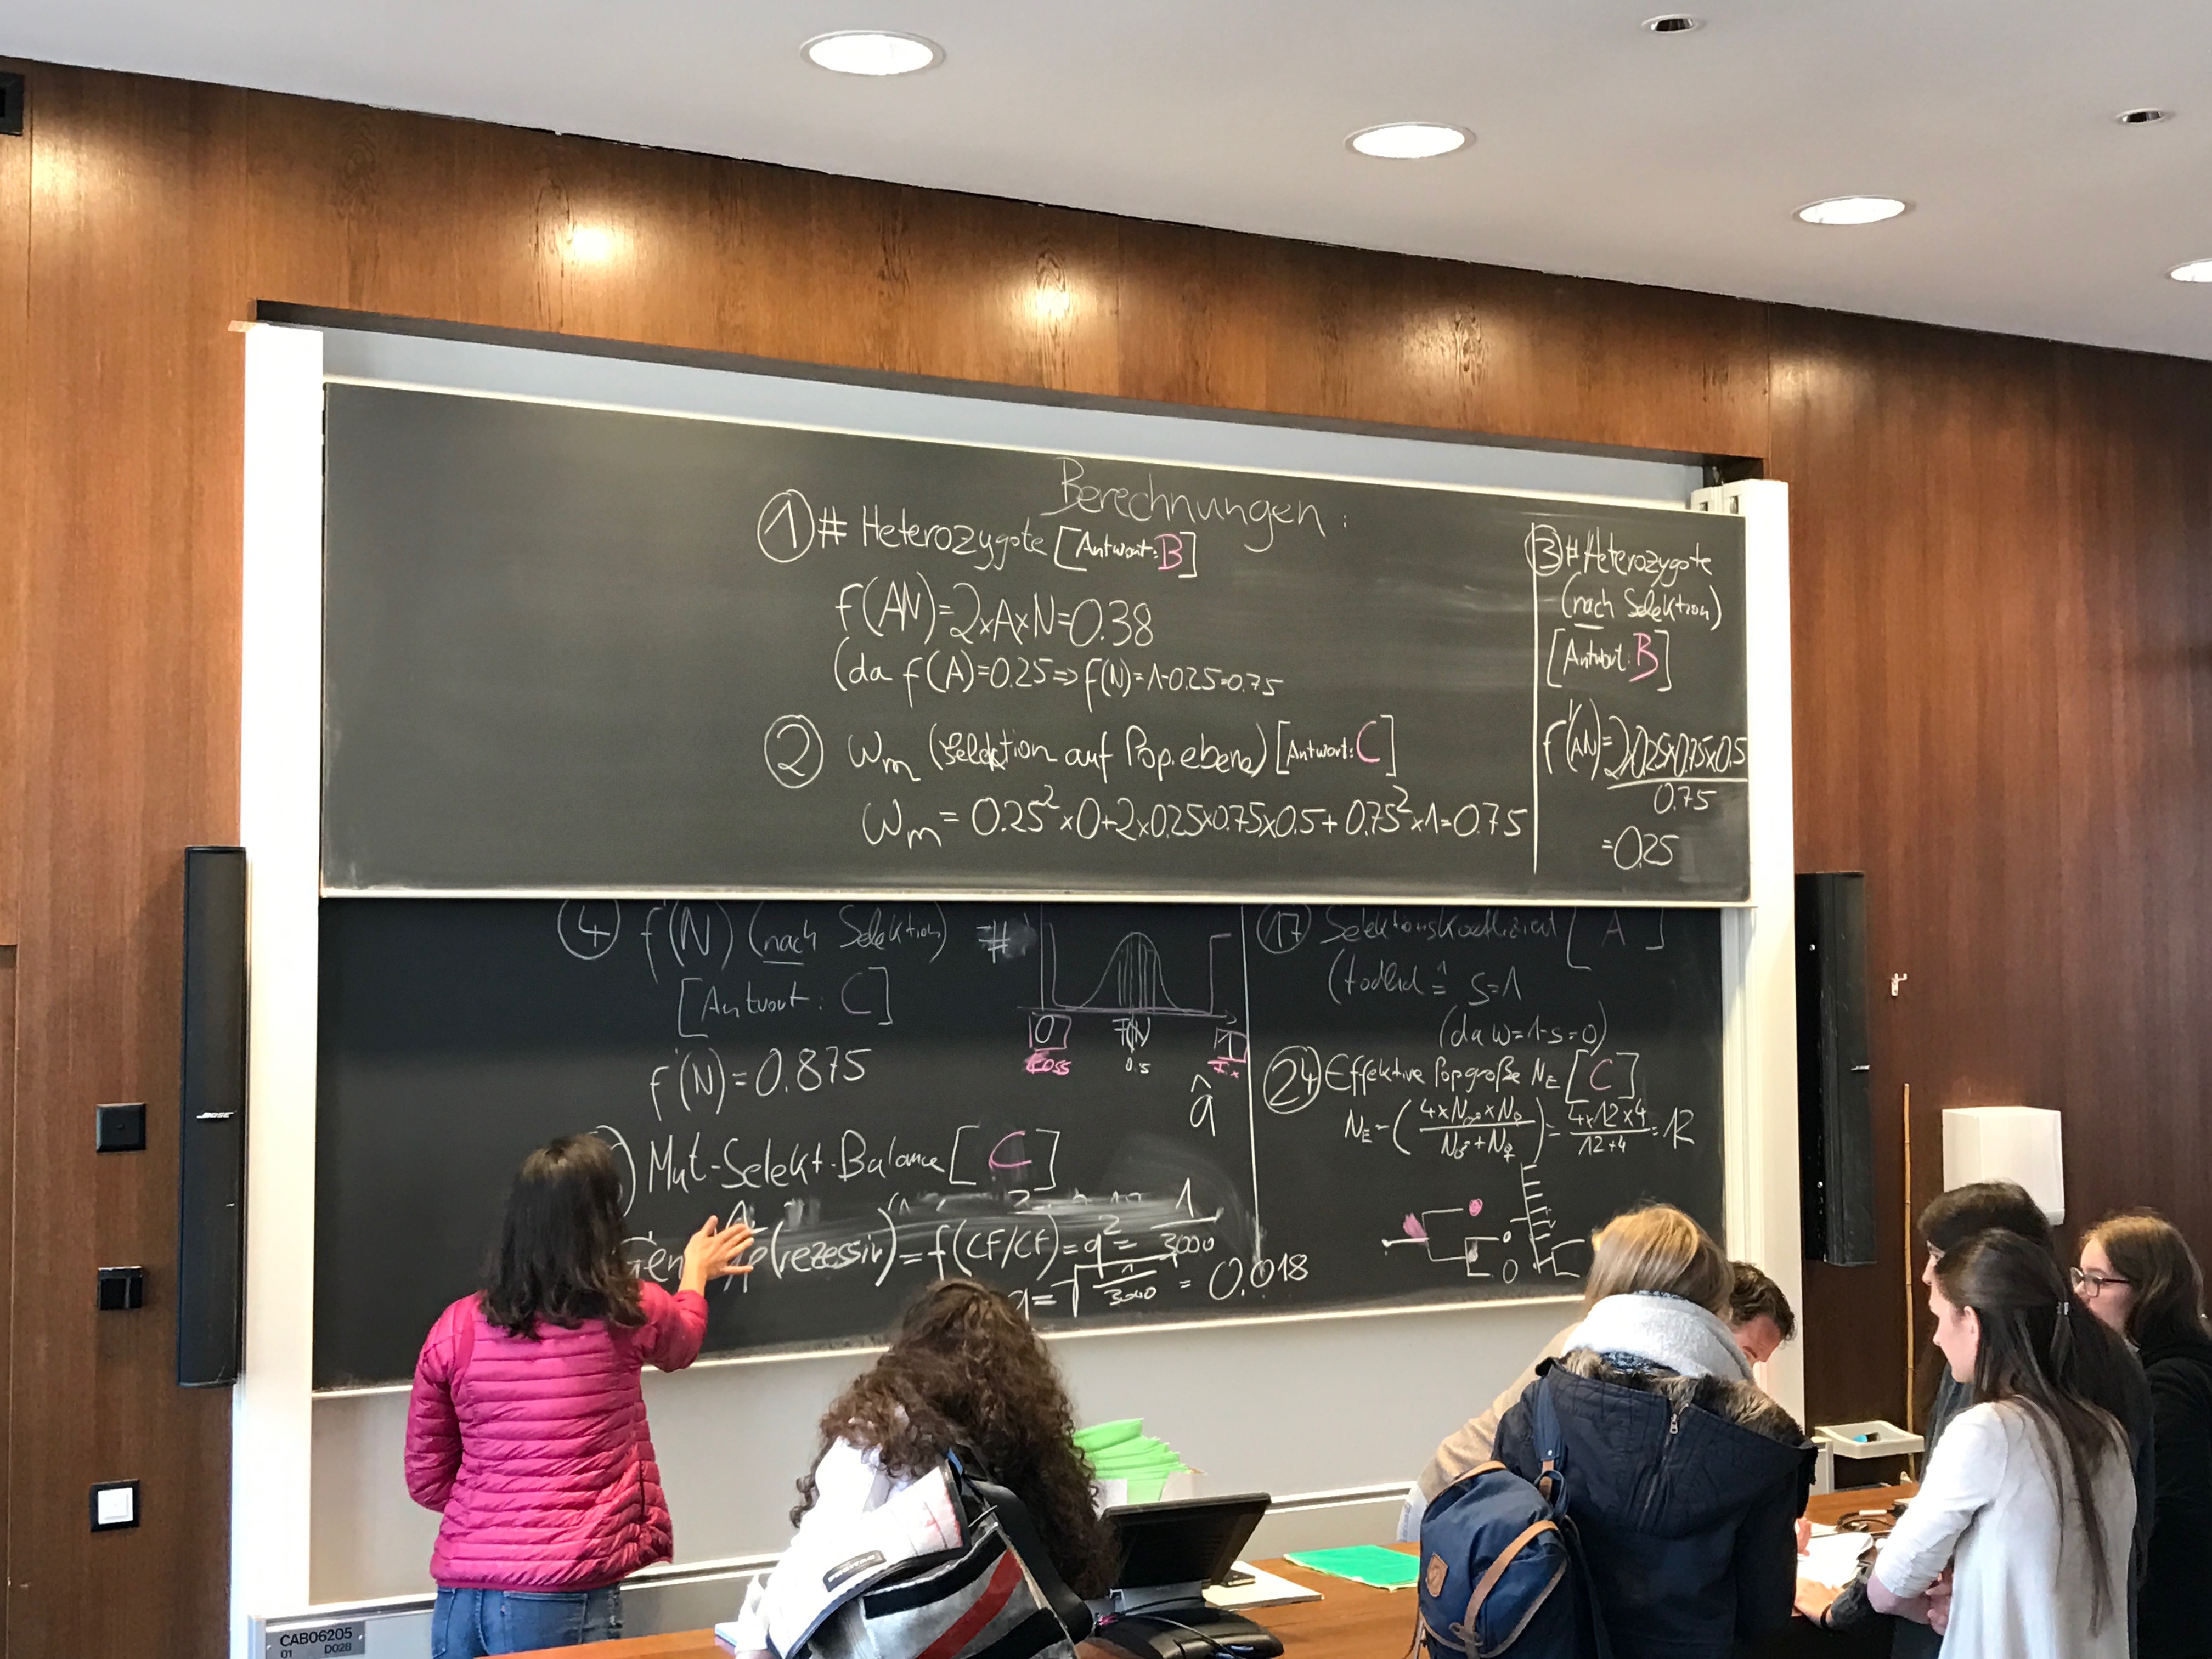 Berechnungen:
① # Heterozygote [Antwort: B]
f(AN)=2×A×N=0.38
(da f(A)=0.25⇒f(N)=1-0.25=0.75
② Wm (Selektion auf Pop.ebene) [Antwort: C]
Wm = 0.25²×0+2×0.25×0.75×0.5+0.75²×1=0.75
③ # Heterozygote
(nach Selektion)
[Antwort: B]
f'(AN)=2×0.25×0.75×0.5
0.75
=0.25
④ f'(N) (nach Selektion) #
[Antwort: C]
f'(N)=0.875
0
0.5
1
Loss
Fix
q̂
Mut-Selekt-Balance [C]
(rezessiv)=f(CF/CF)=q²=1/3000
q=√1/3000 = 0.018
⑰ Selektionskoeffizient [A]
(todlich ≙ s=1
(da w=1-s=0)
㉔ Effektive Popgroße NE [C]
NE=(4×N♂×N♀/N♂+N♀)=4×12×4/12+4=12
BOSE
CAB06205
01 D028